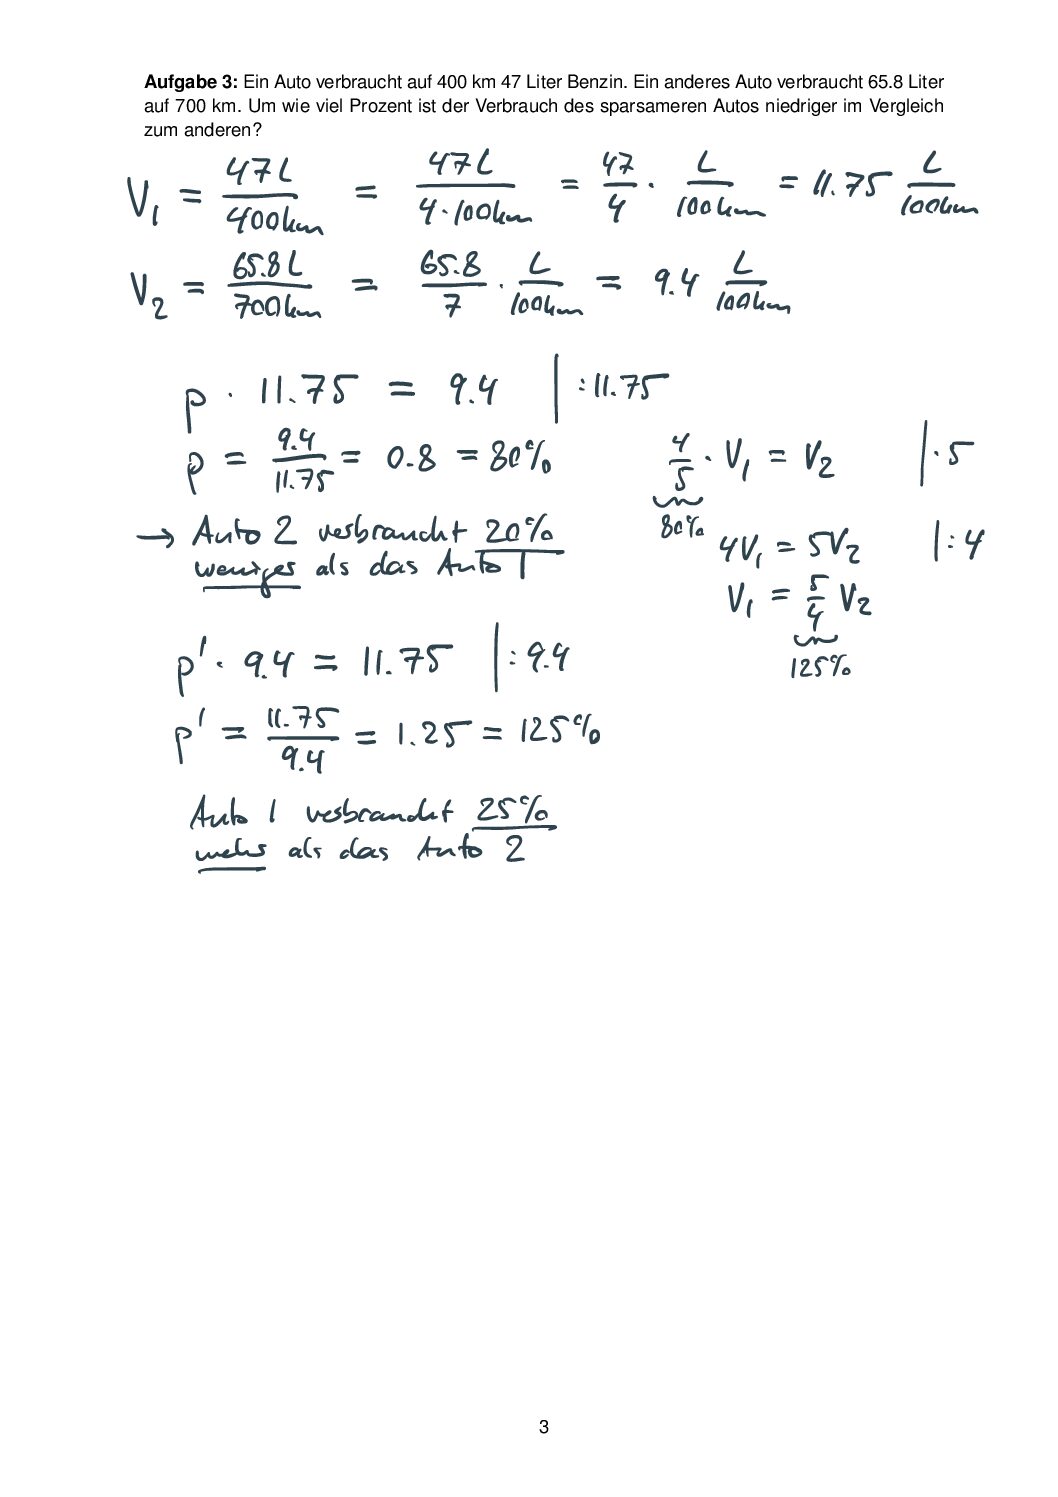 Aufgabe 3: Ein Auto verbraucht auf 400 km 47 Liter Benzin. Ein anderes Auto verbraucht 65.8 Liter
auf 700 km. Um wie viel Prozent ist der Verbrauch des sparsameren Autos niedriger im Vergleich
zum anderen?
V₁ = 47L / 400km = 47L / 4·100km = 47/4 · L/100km = 11.75 L/100km
V₂ = 65.8L / 700km = 65.8/7 · L/100km = 9.4 L/100km
p · 11.75 = 9.4 | :11.75
p = 9.4/11.75 = 0.8 = 80%
→ Auto 2 verbraucht 20%
weniger als das Auto 1
4/5 · V₁ = V₂ | ·5
80%
4V₁ = 5V₂ | :4
V₁ = 5/4 V₂
125%
p' · 9.4 = 11.75 | :9.4
p' = 11.75/9.4 = 1.25 = 125%
Auto 1 verbraucht 25%
mehr als das Auto 2
3